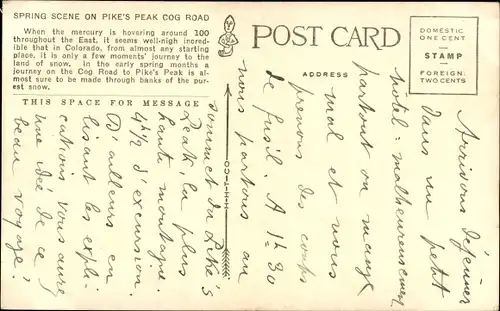 SPRING SCENE ON PIKE'S PEAK COG ROAD
When the mercury is hovering around 100
throughout the East, it seems well-nigh incred-
ible that in Colorado, from almost any starting
place, it is only a few moments' journey to the
land of snow. In the early spring months a
journey on the Cog Road to Pike's Peak is al-
most sure to be made through banks of the pur-
est snow.
THIS SPACE FOR MESSAGE
POST CARD
ADDRESS
DOMESTIC
ONE CENT
STAMP
FOREIGN:
TWO CENTS
H-H-T-CO
Arrivons déjeuner
dans un petit
hôtel : malheureusement
partout on mange
mal et nous
prenons des coups
de fusil. A 1h 30
nous partons au
sommet du Pike's
Peak, la plus
haute montagne.
4h 1/2 d'excursion.
D'ailleurs en
lisant les expli-
cations vous aurez
une idée de ce
beau voyage.